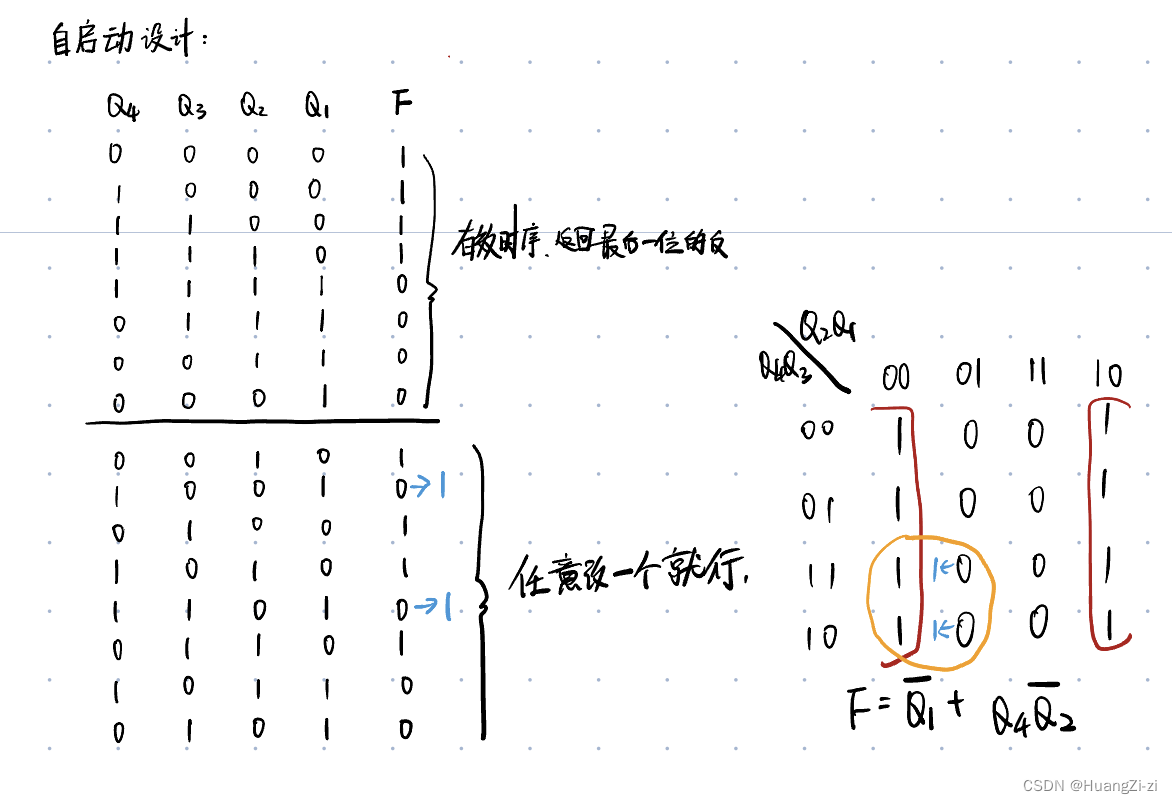 自启动设计:
Q4 Q3 Q2 Q1 F
0 0 0 0 1
1 0 0 0 1
1 1 0 0 1
1 1 1 0 1
1 1 1 1 0
0 1 1 1 0
0 0 1 1 0
0 0 0 1 0
有效时序、返回最后一位的反
0 0 1 0 1
1 0 0 1 0→1
0 1 0 0 1
1 0 1 0 1
1 1 0 1 0→1
0 1 1 0 1
1 0 1 1 0
0 1 0 1 0
任意改一个就行.
Q2Q1
Q4Q3
00 01 11 10
00 1 0 0 1
01 1 0 0 1
11 1 1←0 0 1
10 1 1←0 0 1
F = Q̅1 + Q4Q̅2
CSDN @HuangZi-zi